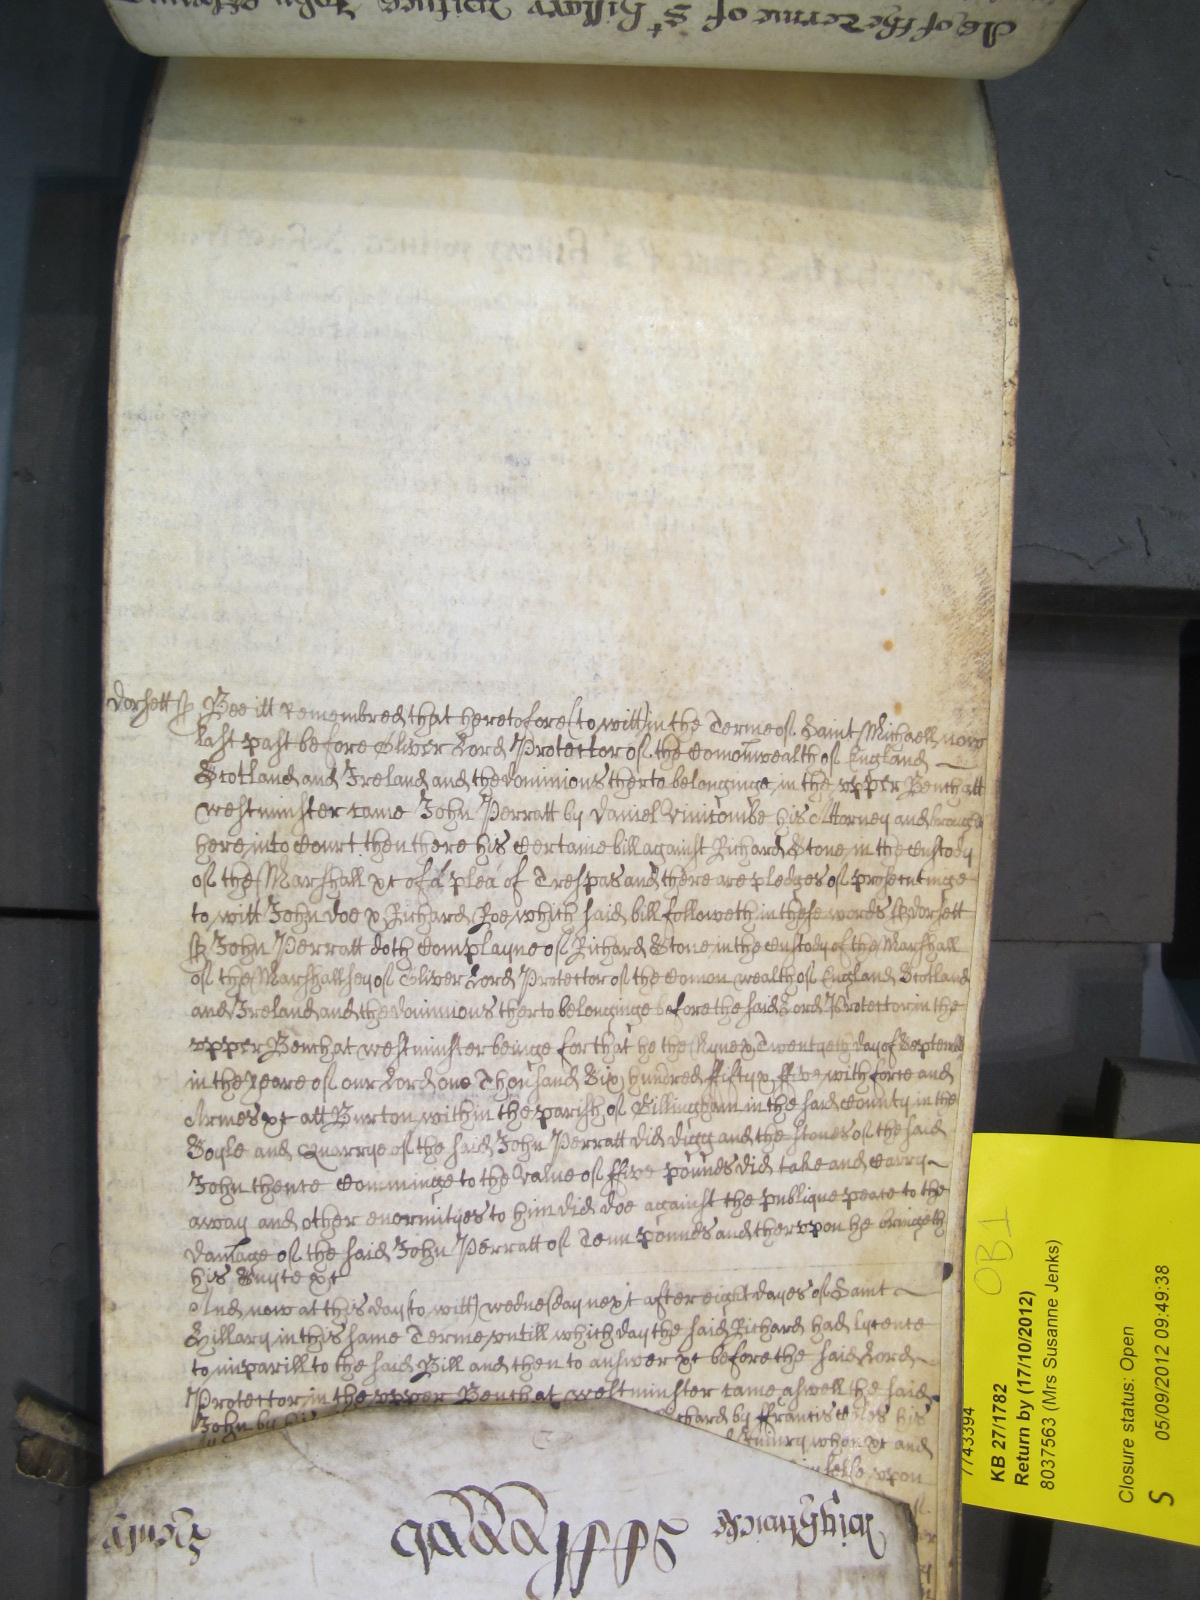 As of the Terme of St Hillary Witnes John
Dorsett ss Bee itt Remembred that heretofore (to witt) in the Terme of Saint Michaell now
last past before Oliver Lord Protector of the Comonwealth of England
Scotland and Ireland and the dominions therto belonginge in the vpper Bench att
Westminster came John Perratt by Daniel Vinicombe his Attorney and brought
here into Court then there his Certaine bill against Richard Stone in the Custody
of the Marshall &c of a plea of Trespas and there are pledges of prosecutinge
to witt John Doe & Richard Roe which said bill followeth in these words ss Dorsett
ss John Perratt doth Complayne of Richard Stone in the Custody of the Marshall
of the Marshallsey of Oliver Lord Protector of the Comon wealth of England Scotland
and Ireland and the dominions therto belonginge before the said Lord Protector in the
vpper Bench at Westminster beinge for that he the Twentyeth day of September
in the yeare of our Lord one Thousand Six hundred ffifty & ffive with force and
Armes &c att Burton within the parish of Gillingham in the said County in the
Soyle and Quarrye of the said John Perratt did digg and the stones of the said
John thence Comminge to the value of ffive pounds did take and Carry
away and other enormityes to him did doe against the publique peace to the
damage of the said John Perratt of Tenn pounds and thervpon he bringeth
his Suyte &c
And now at this day (to witt) wednesday next after eight dayes of Saint
Hillary in this same Terme vntill which day the said Richard had lycence
to imparill to the said Bill and then to answer &c before the said Lord
Protector in the vpper Bench at Westminster came aswell the said
John by his chard by ffrancis his
Iniury when &c and
vpon
Wightwicke
7743394
KB 27/1782
Return by (17/10/2012)
8037563 (Mrs Susanne Jenks)
Closure status: Open
05/09/2012 09:49:38
S
OB1